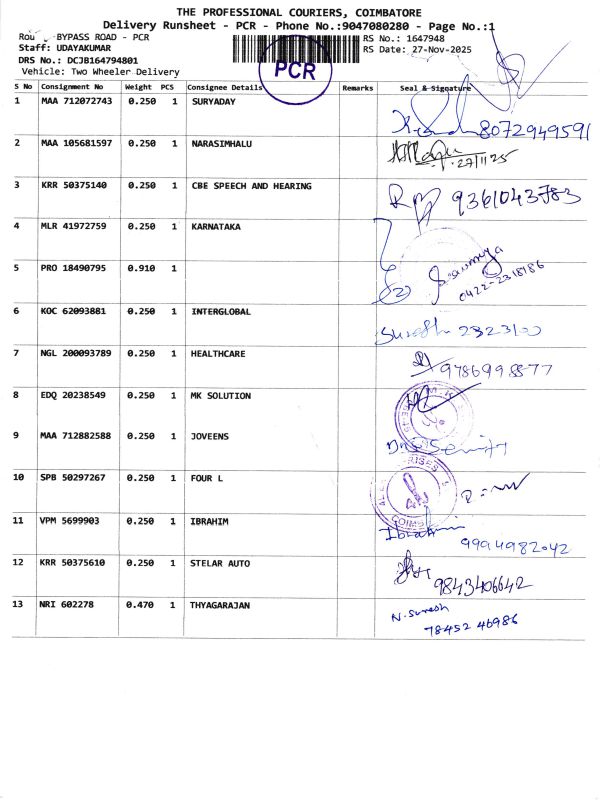 THE PROFESSIONAL COURIERS, COIMBATORE
Delivery Runsheet - PCR - Phone No.:9047080280 - Page No.:1
-BYPASS ROAD - PCR
RS No.: 1647948
Staff: UDAYAKUMAR
RS Date: 27-Nov-2025
DRS No.: DCJB164794801
PCR
Vehicle: Two Wheeler Delivery
S No Consignment No Weight PCS Consignee Details Remarks Seal & Signature
1 MAA 712072743 0.250 1 SURYADAY
8072949591
2 MAA 105681597 0.250 1 NARASIMHALU
27/11/25
3 KRR 50375140 0.250 1 CBE SPEECH AND HEARING
9361043783
4 MLR 41972759 0.250 1 KARNATAKA
5 PRO 18490795 0.910 1
Sowmya
0422-2318186
6 KOC 62093881 0.250 1 INTERGLOBAL
Suresh 2323100
7 NGL 200093789 0.250 1 HEALTHCARE
8 EDQ 20238549 0.250 1 MK SOLUTION
9 MAA 712882588 0.250 1 JOVEENS
10 SPB 50297267 0.250 1 FOUR L
11 VPM 5699903 0.250 1 IBRAHIM
Ibrahim
9994982042
12 KRR 50375610 0.250 1 STELAR AUTO
9843406642
13 NRI 602278 0.470 1 THYAGARAJAN
N. Suresh
78452 46986